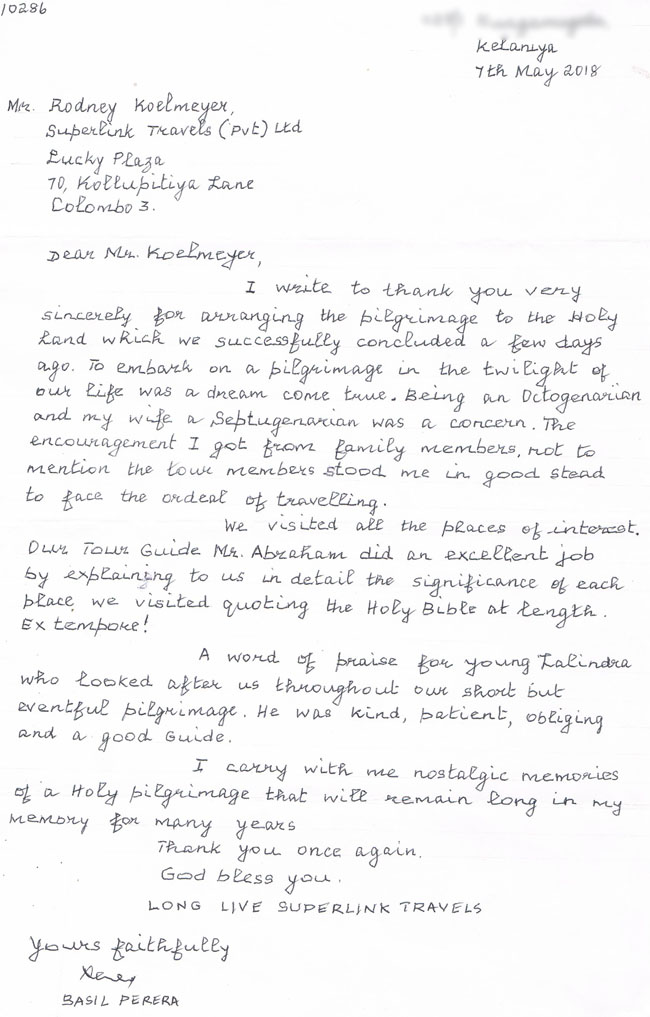 10286
Kelaniya
7th May 2018
Mr. Rodney Koelmeyer,
Superlink Travels (Pvt) Ltd
Lucky Plaza
70, Kollupitiya Lane
Colombo 3.
Dear Mr. Koelmeyer,
I write to thank you very
sincerely for arranging the pilgrimage to the Holy
Land which we successfully concluded a few days
ago. To embark on a pilgrimage in the twilight of
our life was a dream come true. Being an Octogenarian
and my wife a Septugenarian was a concern. The
encouragement I got from family members, not to
mention the tour members stood me in good stead
to face the ordeal of travelling.
We visited all the places of interest.
Our Tour Guide Mr. Abraham did an excellent job
by explaining to us in detail the significance of each
place we visited quoting the Holy Bible at length.
Ex tempore!
A word of praise for young Lalindra
who looked after us throughout our short but
eventful pilgrimage. He was kind, patient, obliging
and a good Guide.
I carry with me nostalgic memories
of a Holy pilgrimage that will remain long in my
memory for many years
Thank you once again.
God bless you.
LONG LIVE SUPERLINK TRAVELS
Yours faithfully
BASIL PERERA